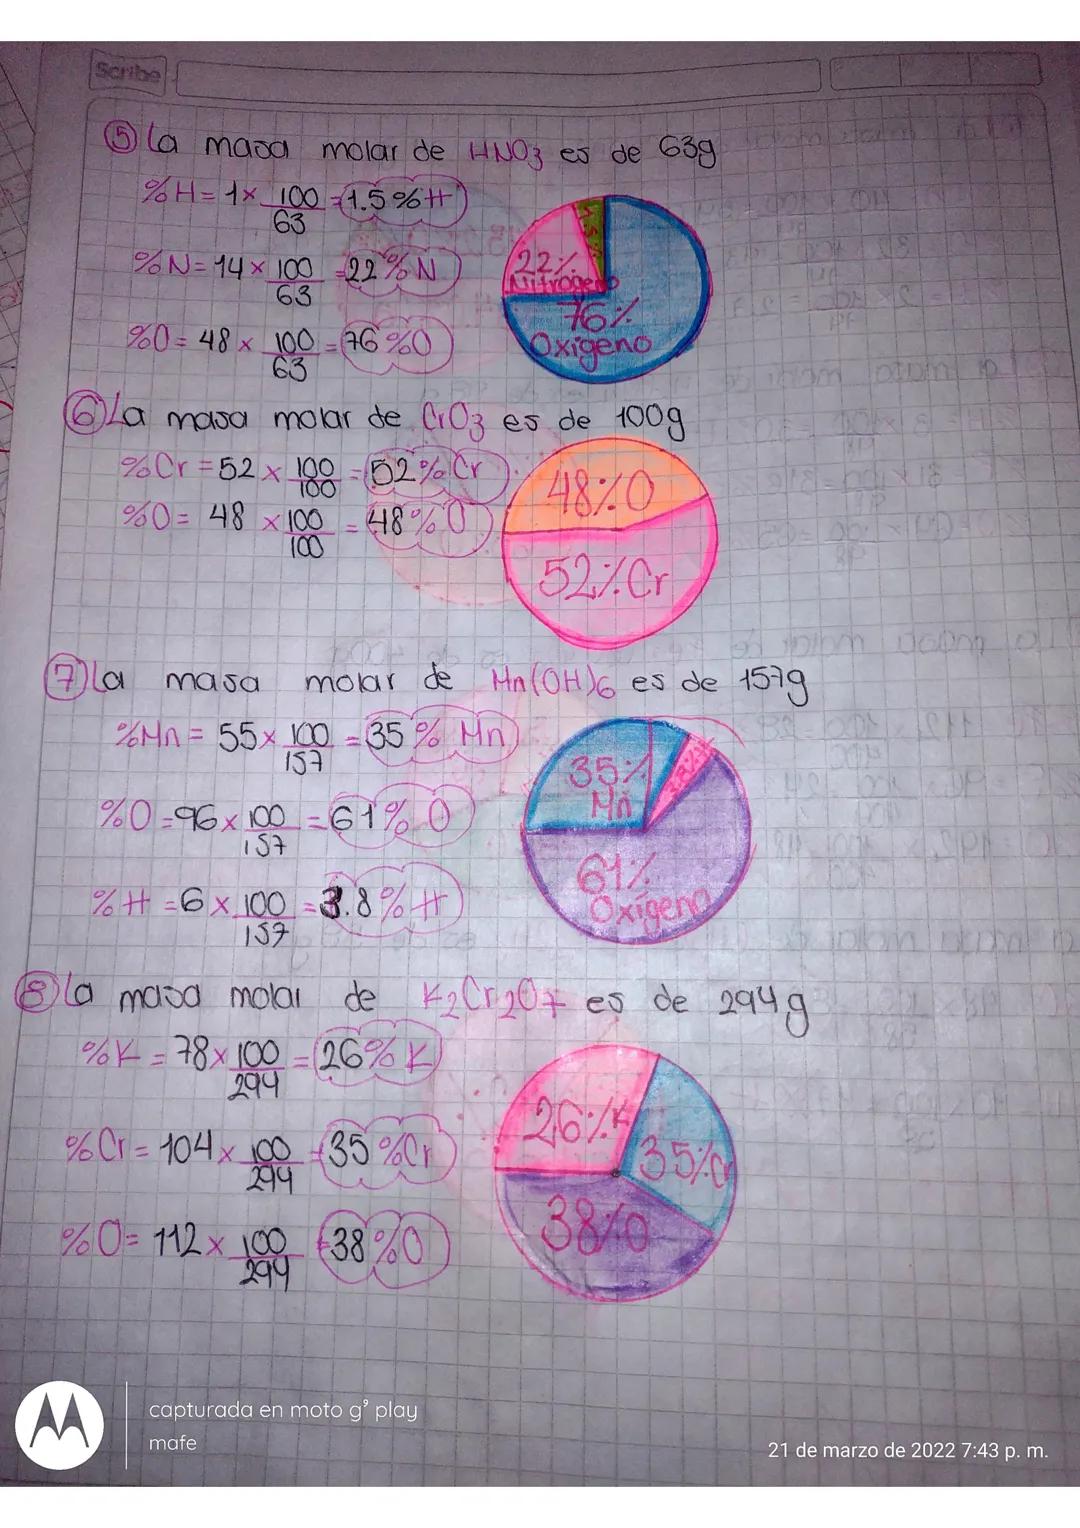 Scribe
⑤ La masa molar de HNO3 es de 63g
%H = 1 × 100/63 = 1.5%H
%N = 14 × 100/63 = 22%N
%O = 48 × 100/63 = 76%O
1.5%
22%
Nitrógeno
76%
Oxígeno
⑥ La masa molar de CrO3 es de 100g
%Cr = 52 × 100/100 = 52%Cr
%O = 48 × 100/100 = 48%O
48%O
52%Cr
⑦ La masa molar de Mn(OH)6 es de 157g
%Mn = 55 × 100/157 = 35% Mn
%O = 96 × 100/157 = 61% O
%H = 6 × 100/157 = 3.8% H
35%
Mn
61%
Oxígeno
⑧ La masa molar de K2Cr2O7 es de 294g
%K = 78 × 100/294 = 26% K
%Cr = 104 × 100/294 = 35%Cr
%O = 112 × 100/294 = 38%O
26%K
35%Cr
38%O
capturada en moto g⁹ play
mafe
21 de marzo de 2022 7:43 p. m.